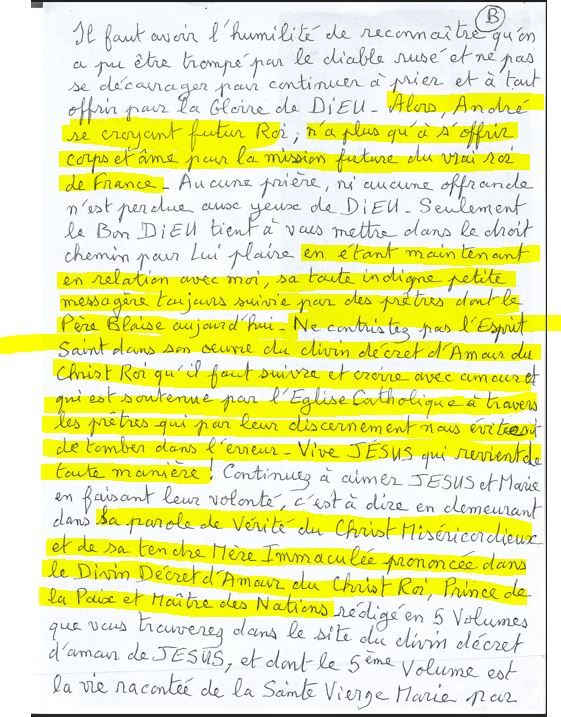 B
Il faut avoir l'humilité de reconnaître qu'on
a pu être trompé par le diable rusé et ne pas
se décourager pour continuer à prier et à tout
offrir pour la Gloire de DIEU - Alors, André
se croyant futur Roi, n'a plus qu'à s'offrir
corps et âme pour la mission future du vrai roi
de France - Aucune prière, ni aucune offrande
n'est perdue aux yeux de DIEU - Seulement
le Bon DIEU tient à vous mettre dans le droit
chemin pour Lui plaire en étant maintenant
en relation avec moi, sa toute indigne petite
messagère toujours suivie par des prêtres dont le
Père Blaise aujourd'hui - Ne contristez pas l'Esprit
Saint dans son oeuvre du divin décret d'Amour du
Christ Roi qu'il faut suivre et croire avec amour et
qui est soutenue par l'Eglise Catholique à travers
les prêtres qui par leur discernement nous évitent
de tomber dans l'erreur - Vive JÉSUS qui revient de
toute manière ! Continuez à aimer JESUS et Marie
en faisant leur volonté, c'est à dire en demeurant
dans Sa parole de Vérité du Christ Miséricordieux
et de sa tendre Mère Immaculée prononcée dans
le Divin Décret d'Amour du Christ Roi, Prince de
la Paix et Maître des Nations rédigé en 5 Volumes
que vous trouverez dans le site du divin décret
d'amour de JESUS, et dont le 5ème Volume est
la vie racontée de la Sainte Vierge Marie par